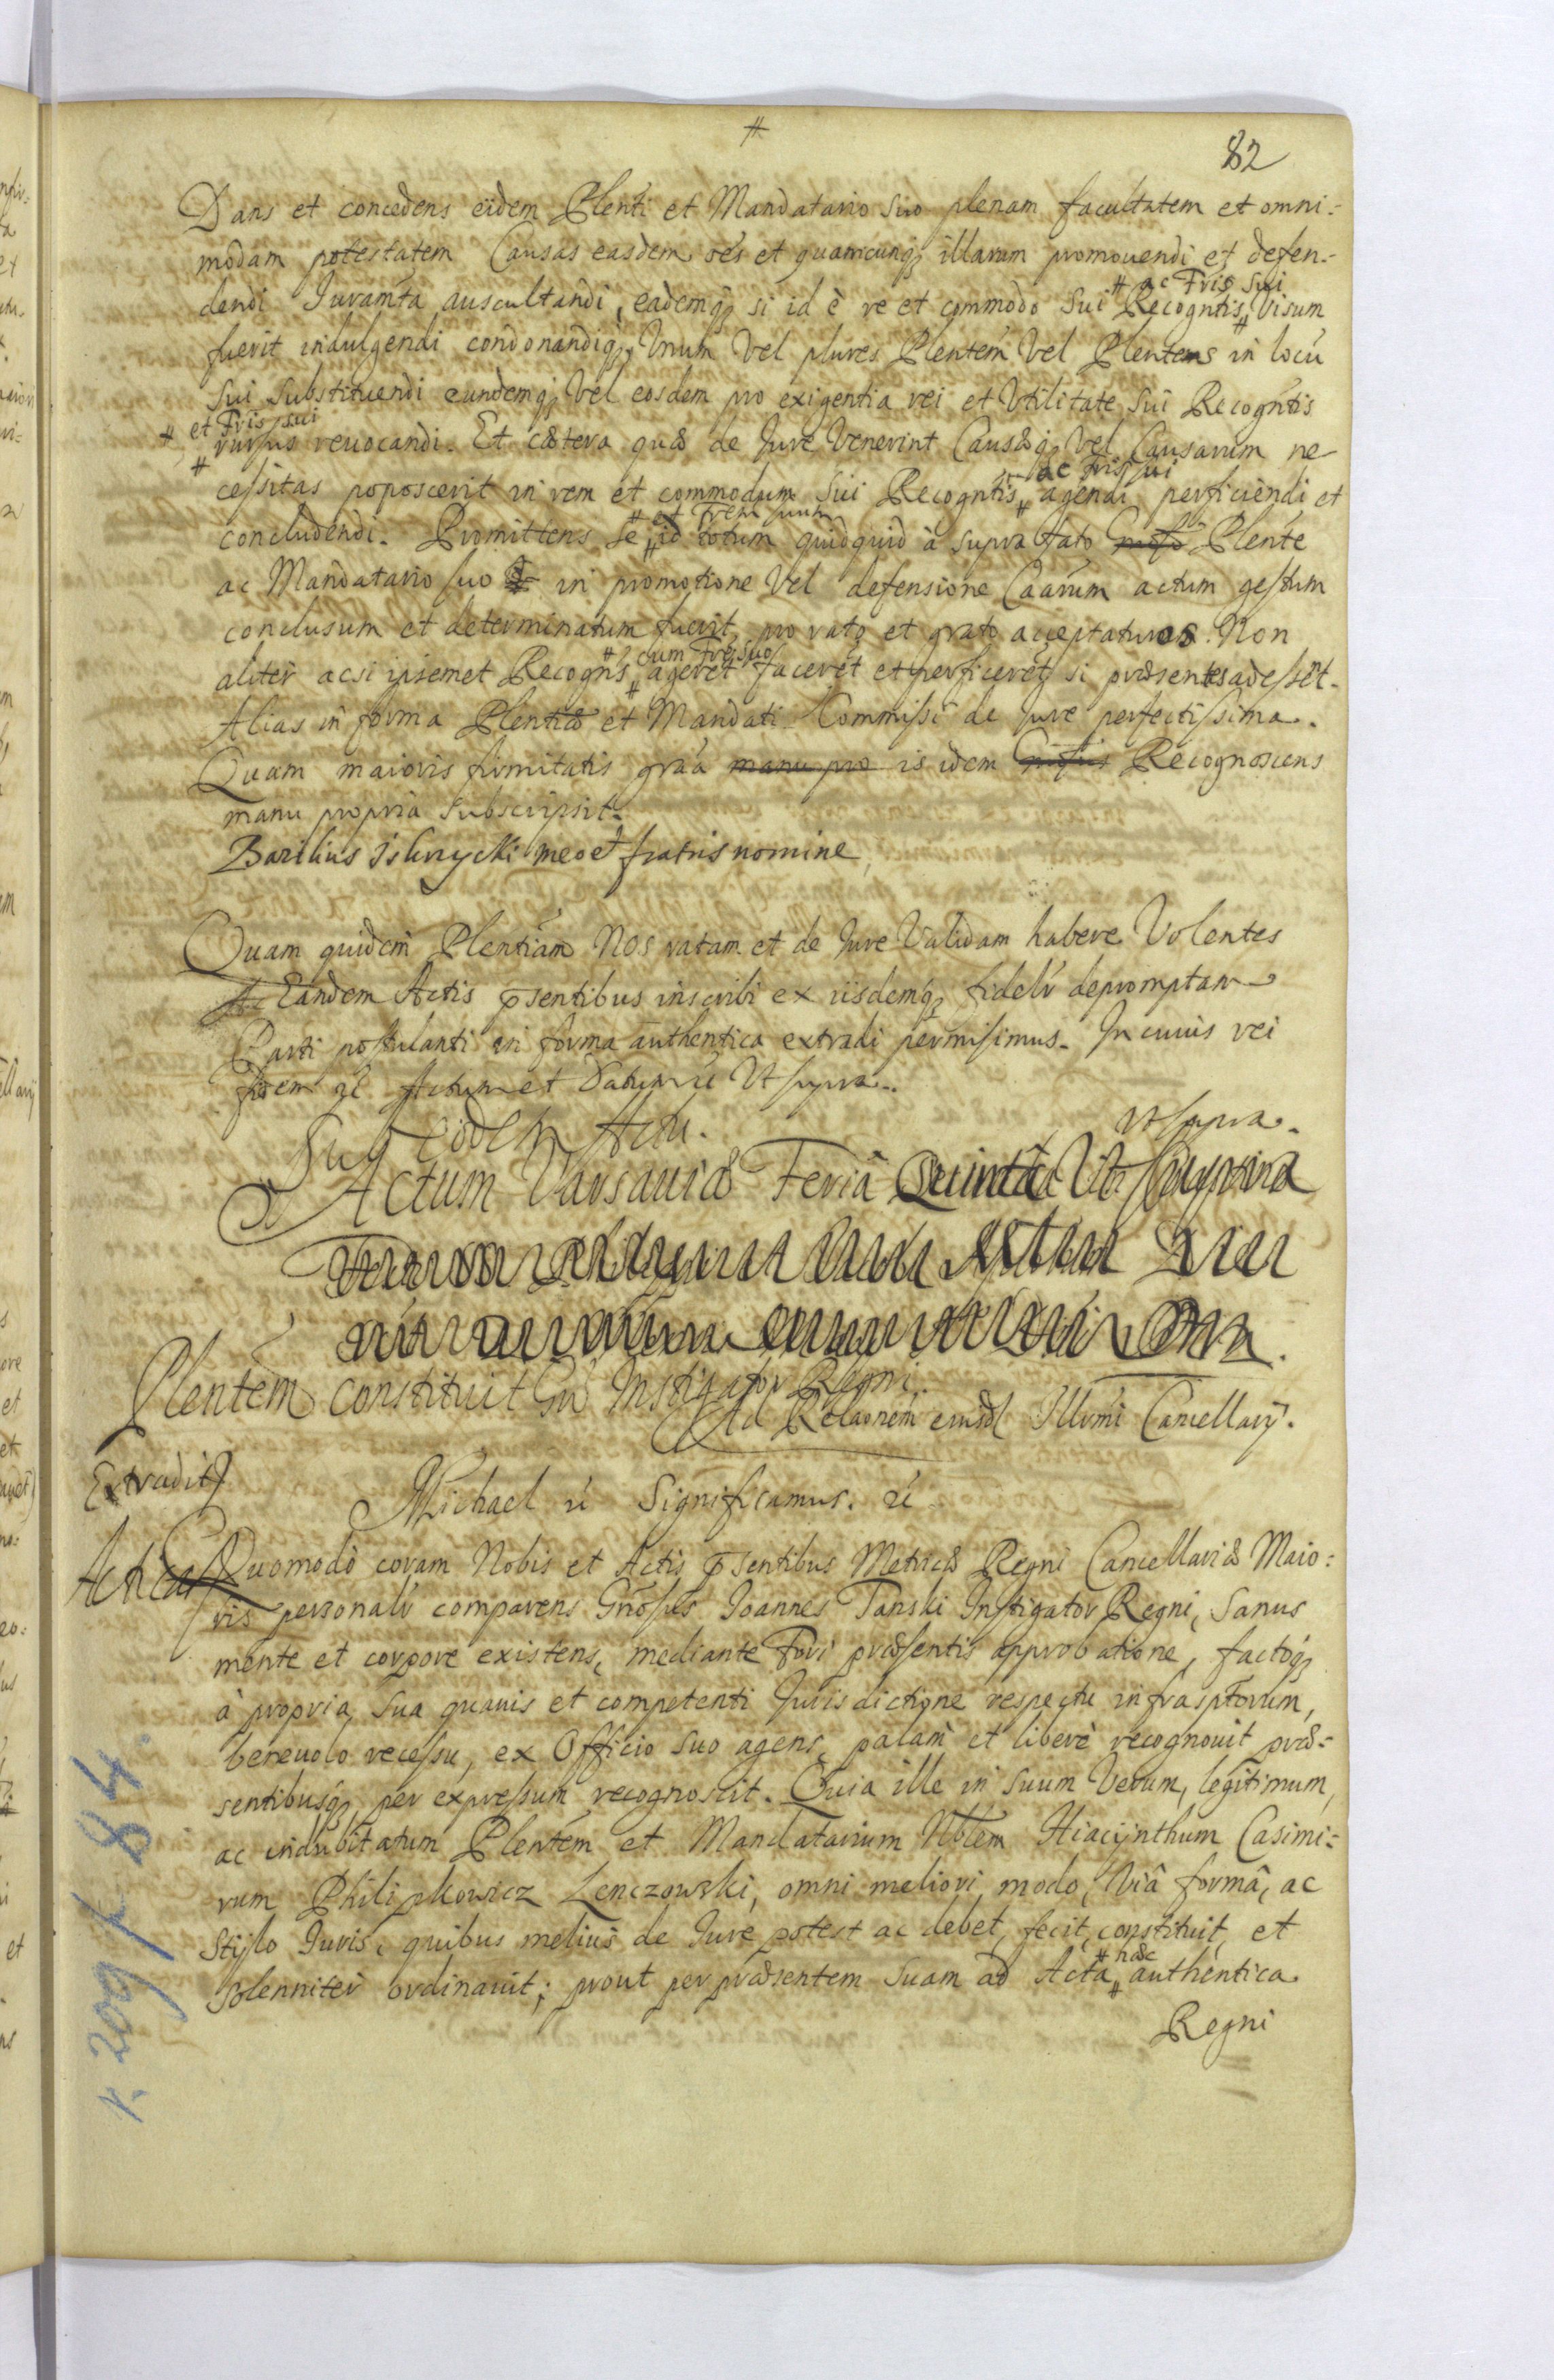 #
82
Dans et concedens eidem Plenti et Mandatario suo plenam facultatem et omni:
modam potestatem Causas easdem oes et quamcunq illarum promouendi et defen:
# ac Fris sui
dendi Juramta auscultandi, eademq si id è re et commodo sui Recogntis # Visum
fuerit indulgendi condonandiq, Vnum Vel plures Plentem Vel Plentens in locu
Sui Substituendi eundemq Vel eosdem pro exigentia rei et Vtilitate Sui Recogntis
# et Fris sui
# rursus reuocandi. Et cætera quæ de Jure Venerint Causæq Vel Causarum ne
ac Fris sui
cessitas poposcerit in rem et commodum Sui Recogntis # agendi perficiendi et
# et Frem suum
concludendi. Promittens se # id totum quidquid à supra fato Plente
ac Mandatario suo in promotione Vel defensione Caarum actum gestum
conclusum et determinatum fuerit, pro rato et grato acceptaturos. Non
# cum Fre suo
aliter acsi ipsemet Recogns # ageret faceret et perficeret si præsentes adessent.
Alias in forma Plentiæ et Mandati Commissi de Jure perfectissima.
Quam maioris firmitatis graa manu pro is idem Recognoscens
manu propria Subscripsit.
Bazilius Isknycki meo et fratris nomine
Quam quidem Plentiam Nos ratam et de Jure Validam habere Volentes
Eandem Actis psentibus inscribi ex iisdemq fideliter depromptam
Parti postulanti in forma authentica extradi permisimus. In cuius rei
fidem &c Actum et Datum &c Vt supra.
Sub eodem Actu. Vt supra.
Actum Varsauiæ Feria Quinta Vt supra
Plentem constituit Gn Instigator Regni
Ad Relaonem eiusd Illrmi Cancellarij.
Extradit
Michael &c Significamus. &c
Acticat
Quomodo coram Nobis et Actis psentibus Metricæ Regni Cancellariæ Maio:
ris personalr comparens Gnosus Joannes Tanski Instigator Regni, Sanus
mente et corpore existens, mediante Fori præsentis approbatione, factoq
à propria sua quauis et competenti Jurisdictione respectu infrasptorum,
beneuolo recessu, ex Officio suo agens, palam et liberè recognouit præ:
sentibusq per expressum recognoscit. Quia ille in suum Verum, legitimum,
ac indubitatum Plentem et Mandatarium Nblem Hiacijnthum Casimi:
rum Philipkowicz Lenczowski, omni meliori modo, Viâ formâ, ac
Stijlo Juris, quibus melius de Jure potest ac debet, fecit, constituit, et
# hæc
solenniter ordinauit; prout per præsentem suam ad Acta # authentica
Regni
r. 209 f. 84.